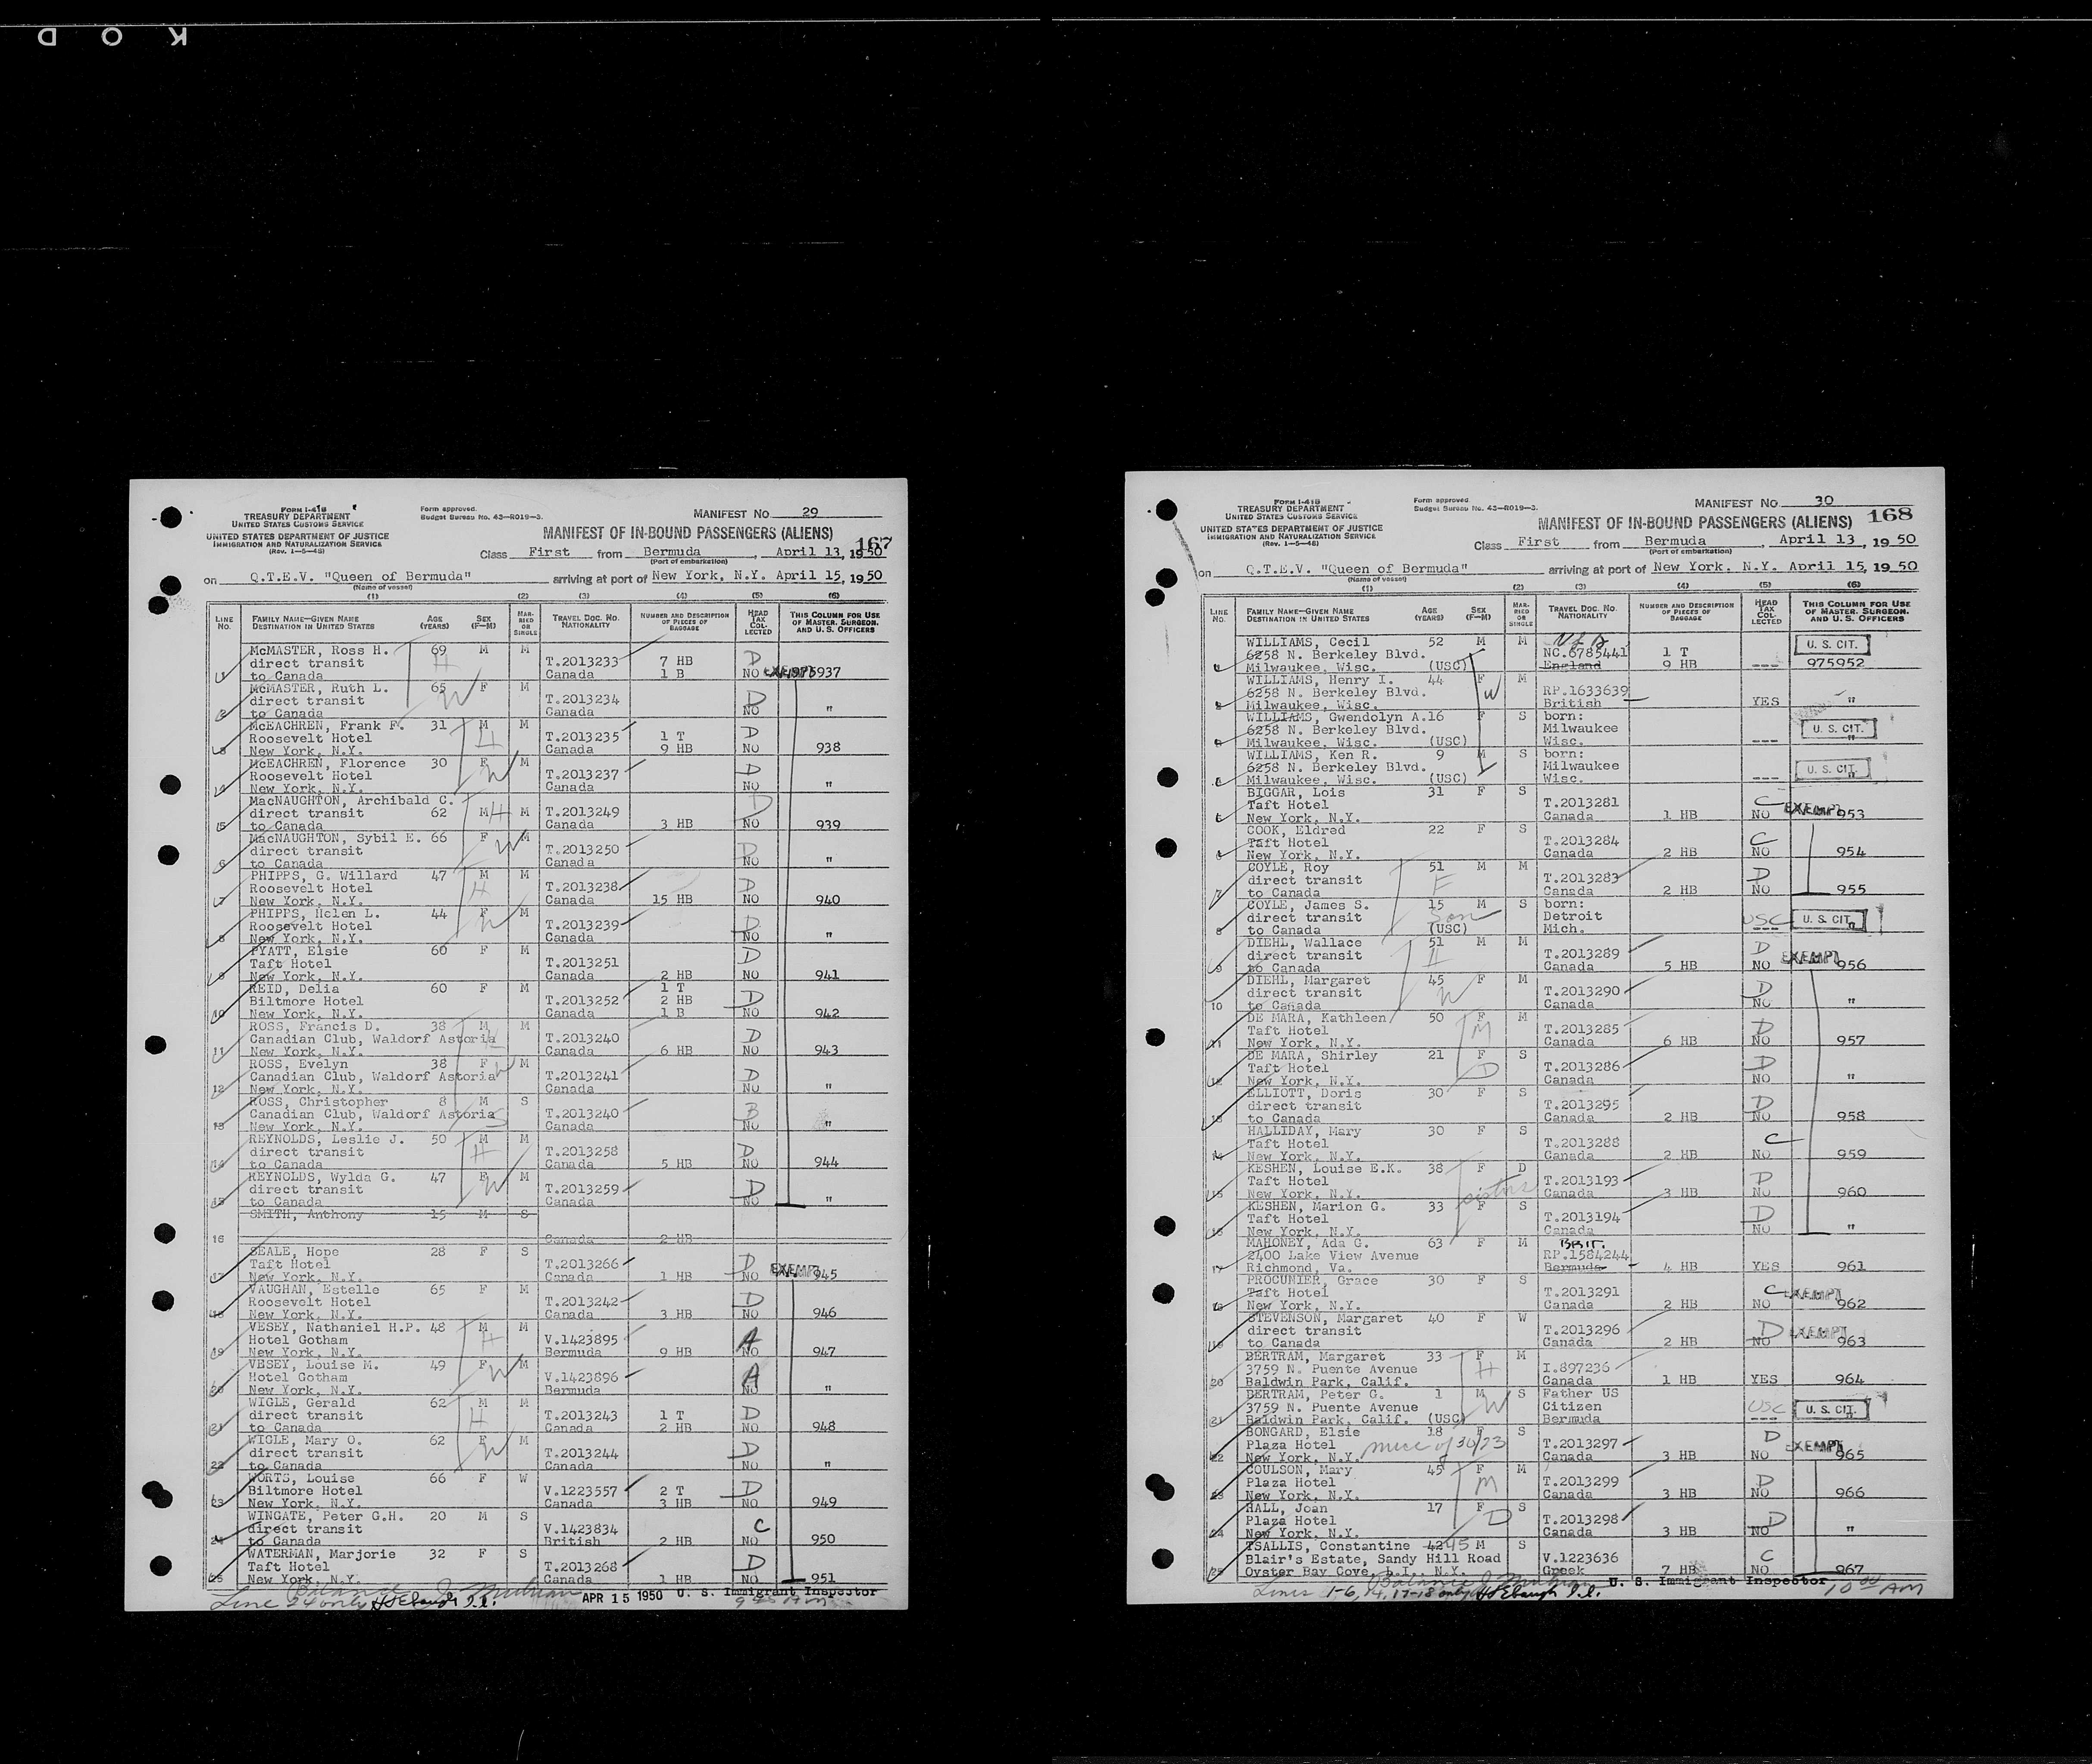 K O D
FORM I-41B
TREASURY DEPARTMENT
UNITED STATES CUSTOMS SERVICE
UNITED STATES DEPARTMENT OF JUSTICE
IMMIGRATION AND NATURALIZATION SERVICE
(Rev. 1-5-48)
Form approved.
Budget Bureau No. 43-R019-3.
MANIFEST NO. 29
MANIFEST OF IN-BOUND PASSENGERS (ALIENS)
167
Class First from Bermuda, April 13, 1950
(Port of embarkation)
on Q.T.E.V. "Queen of Bermuda" arriving at port of New York, N.Y. April 15, 1950
(Name of vessel)
(1) (2) (3) (4) (5) (6)
LINE NO. FAMILY NAME—GIVEN NAME DESTINATION IN UNITED STATES AGE (YEARS) SEX (F-M) MARRIED OR SINGLE TRAVEL DOC. NO. NATIONALITY NUMBER AND DESCRIPTION OF PIECES OF BAGGAGE HEAD TAX COLLECTED THIS COLUMN FOR USE OF MASTER, SURGEON, AND U. S. OFFICERS
McMASTER, Ross H. 69 M M
direct transit T.2013233 7 HB D
1 to Canada Canada 1 B NO EXEMPT 975937
McMASTER, Ruth L. 65 F M
direct transit T.2013234 D
2 to Canada Canada NO "
McEACHREN, Frank F. 31 M M
Roosevelt Hotel T.2013235 1 T D
3 New York, N.Y. Canada 9 HB NO 938
McEACHREN, Florence 30 F M
Roosevelt Hotel T.2013237 D
4 New York, N.Y. Canada NO "
MacNAUGHTON, Archibald C.
direct transit 62 M H M T.2013249 D
5 to Canada Canada 3 HB NO 939
MacNAUGHTON, Sybil E. 66 F W M
direct transit T.2013250 D
6 to Canada Canada NO "
PHIPPS, G. Willard 47 M M
Roosevelt Hotel H T.2013238 D
7 New York, N.Y. Canada 15 HB NO 940
PHIPPS, Helen L. 44 F M
Roosevelt Hotel W T.2013239 D
8 New York, N.Y. Canada NO "
PYATT, Elsie 60 F M
Taft Hotel T.2013251 D
9 New York, N.Y. Canada 2 HB NO 941
REID, Delia 60 F M 1 T
Biltmore Hotel T.2013252 2 HB D
10 New York, N.Y. Canada 1 B NO 942
ROSS, Francis D. 38 M M
Canadian Club, Waldorf Astoria T.2013240 D
11 New York, N.Y. Canada 6 HB NO 943
ROSS, Evelyn 38 F W M
Canadian Club, Waldorf Astoria T.2013241 D
12 New York, N.Y. Canada NO "
ROSS, Christopher 8 M S
Canadian Club, Waldorf Astoria T.2013240 B
13 New York, N.Y. Canada NO "
REYNOLDS, Leslie J. 50 M M
direct transit H T.2013258 D
14 to Canada Canada 5 HB NO 944
REYNOLDS, Wylda G. 47 F M
direct transit W T.2013259 D
15 to Canada Canada NO "
SMITH, Anthony 15 M S
16 Canada 2 HB
SEALE, Hope 28 F S
Taft Hotel T.2013266 D
17 New York, N.Y. Canada 1 HB NO EXEMPT 945
VAUGHAN, Estelle 65 F M
Roosevelt Hotel T.2013242 D
18 New York, N.Y. Canada 3 HB NO 946
VESEY, Nathaniel H.P. 48 M M
Hotel Gotham H V.1423895 A
19 New York, N.Y. Bermuda 9 HB NO 947
VESEY, Louise M. 49 F M
Hotel Gotham W V.1423896 A
20 New York, N.Y. Bermuda NO "
WIGLE, Gerald 62 M M
direct transit H T.2013243 1 T D
21 to Canada Canada 2 HB NO 948
WIGLE, Mary O. 62 F M
direct transit W T.2013244 D
22 to Canada Canada NO "
WORTS, Louise 66 F W
Biltmore Hotel V.1223557 2 T D
23 New York, N.Y. Canada 3 HB NO 949
WINGATE, Peter G.H. 20 M S
direct transit V.1423834 C
24 to Canada British 2 HB NO 950
WATERMAN, Marjorie 32 F S
Taft Hotel T.2013268 D
25 New York, N.Y. Canada 1 HB NO 951
Line 24 only APR 15 1950 U. S. Immigrant Inspector
FORM I-41B
TREASURY DEPARTMENT
UNITED STATES CUSTOMS SERVICE
UNITED STATES DEPARTMENT OF JUSTICE
IMMIGRATION AND NATURALIZATION SERVICE
(Rev. 1-5-48)
Form approved.
Budget Bureau No. 43-R019-3.
MANIFEST NO. 30
MANIFEST OF IN-BOUND PASSENGERS (ALIENS) 168
Class First from Bermuda, April 13, 1950
(Port of embarkation)
on Q.T.E.V. "Queen of Bermuda" arriving at port of New York, N.Y. April 15, 1950
(Name of vessel)
(1) (2) (3) (4) (5) (6)
LINE NO. FAMILY NAME—GIVEN NAME DESTINATION IN UNITED STATES AGE (YEARS) SEX (F-M) MARRIED OR SINGLE TRAVEL DOC. NO. NATIONALITY NUMBER AND DESCRIPTION OF PIECES OF BAGGAGE HEAD TAX COLLECTED THIS COLUMN FOR USE OF MASTER, SURGEON, AND U. S. OFFICERS
WILLIAMS, Cecil 52 M M U. S. CIT.
6258 N. Berkeley Blvd. NC.6785441 1 T
Milwaukee, Wisc. (USC) England 9 HB --- 975952
WILLIAMS, Henry I. 44 F M
6258 N. Berkeley Blvd. W RP.1633639
Milwaukee, Wisc. British YES "
WILLIAMS, Gwendolyn A. 16 F S born:
6258 N. Berkeley Blvd. Milwaukee U. S. CIT.
Milwaukee, Wisc. (USC) Wisc. --- "
WILLIAMS, Ken R. 9 M S born:
6258 N. Berkeley Blvd. Milwaukee U. S. CIT.
Milwaukee, Wisc. (USC) Wisc. --- "
BIGGAR, Lois 31 F S
Taft Hotel T.2013281 C
New York, N.Y. Canada 1 HB NO EXEMPT 953
COOK, Eldred 22 F S
Taft Hotel T.2013284 C
New York, N.Y. Canada 2 HB NO 954
COYLE, Roy 51 M M
direct transit F T.2013283 D
7 to Canada Canada 2 HB NO 955
COYLE, James S. 15 M S born:
direct transit Son Detroit USC U. S. CIT.
8 to Canada (USC) Mich. --- "
DIEHL, Wallace 51 M M
direct transit H T.2013289 D
9 to Canada Canada 5 HB NO EXEMPT 956
DIEHL, Margaret 45 F M
direct transit W T.2013290 D
10 to Canada Canada NO "
DE MARA, Kathleen 50 F M
Taft Hotel M T.2013285 D
11 New York, N.Y. Canada 6 HB NO 957
DE MARA, Shirley 21 F S
Taft Hotel D T.2013286 D
12 New York, N.Y. Canada NO "
ELLIOTT, Doris 30 F S
direct transit T.2013295 D
13 to Canada Canada 2 HB NO 958
HALLIDAY, Mary 30 F S
Taft Hotel T.2013288 C
14 New York, N.Y. Canada 2 HB NO 959
KESHEN, Louise E.K. 38 F D
Taft Hotel sisters T.2013193 D
15 New York, N.Y. Canada 3 HB NO 960
KESHEN, Marion G. 33 F S
Taft Hotel T.2013194 D
16 New York, N.Y. Canada NO "
MAHONEY, Ada G. 63 F M BRIT.
2400 Lake View Avenue RP.1584244
17 Richmond, Va. Bermuda 4 HB YES 961
PROCUNIER, Grace 30 F S
Taft Hotel T.2013291 C
18 New York, N.Y. Canada 2 HB NO EXEMPT 962
STEVENSON, Margaret 40 F W
direct transit T.2013296 D
19 to Canada Canada 2 HB NO EXEMPT 963
BERTRAM, Margaret 33 F M
3759 N. Puente Avenue H I.897236
20 Baldwin Park, Calif. Canada 1 HB YES 964
BERTRAM, Peter G. 1 M S Father US
3759 N. Puente Avenue W Citizen USC U. S. CIT.
21 Baldwin Park, Calif. (USC) Bermuda --- "
BONGARD, Elsie 18 F S
Plaza Hotel niece of 30/23 T.2013297 D
22 New York, N.Y. Canada 3 HB NO EXEMPT 965
COULSON, Mary 45 F M
Plaza Hotel M T.2013299 D
23 New York, N.Y. Canada 3 HB NO 966
HALL, Joan 17 F S
Plaza Hotel D T.2013298 D
24 New York, N.Y. Canada 3 HB NO "
TSALLIS, Constantine 42 45 M S
Blair's Estate, Sandy Hill Road V.1223636 C
25 Oyster Bay Cove, L.I., N.Y. Greek 7 HB NO 967
Lines 1-6, 14, 17-18 only U. S. Immigrant Inspector 10 00 AM